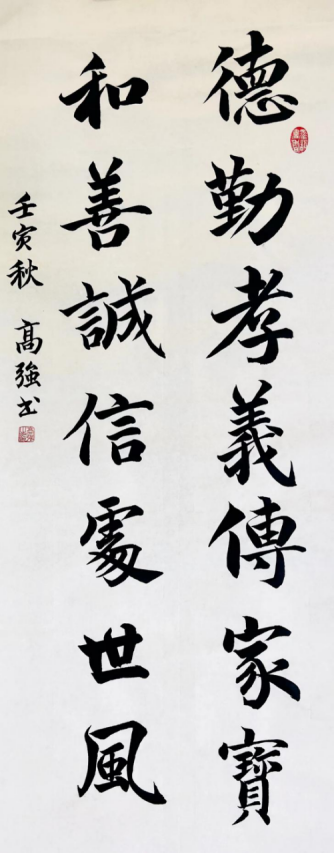 德勤孝義傳家寶
和善誠信處世風
壬寅秋 高強书